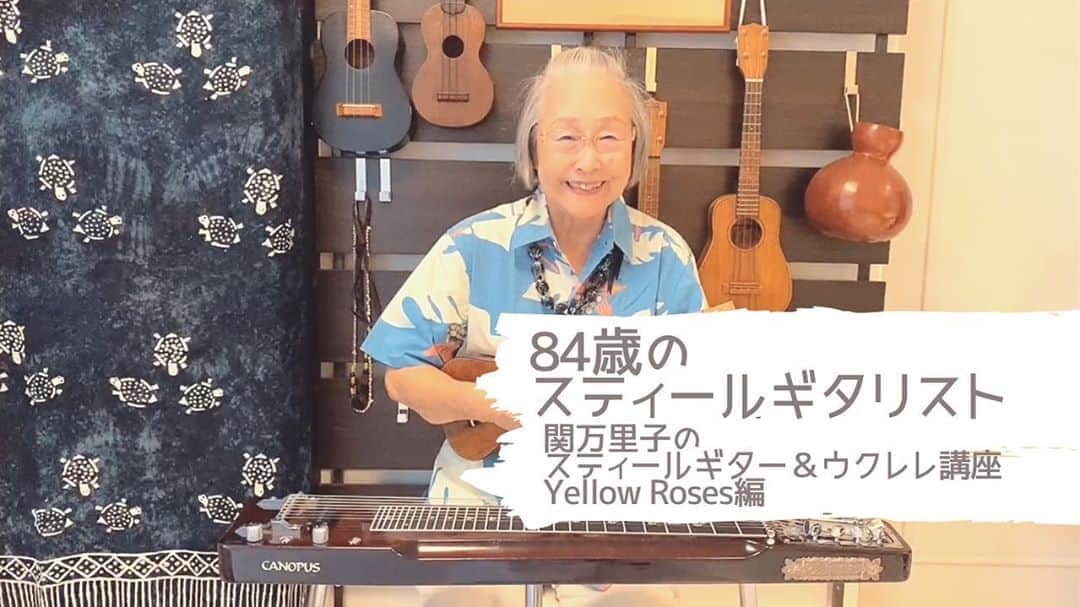 84歳の
スティールギタリスト
関万里子の
スティールギター＆ウクレレ講座
Yellow Roses編
CANOPUS